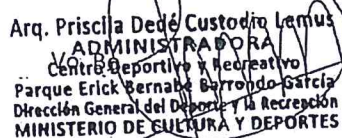 Arq. Priscila Dedé Custodio Lemus
ADMINISTRADORA
Vo. Bo.
Centro Deportivo y Recreativo
Parque Erick Bernabé Barrondo García
Dirección General del Deporte y la Recreación
MINISTERIO DE CULTURA Y DEPORTES